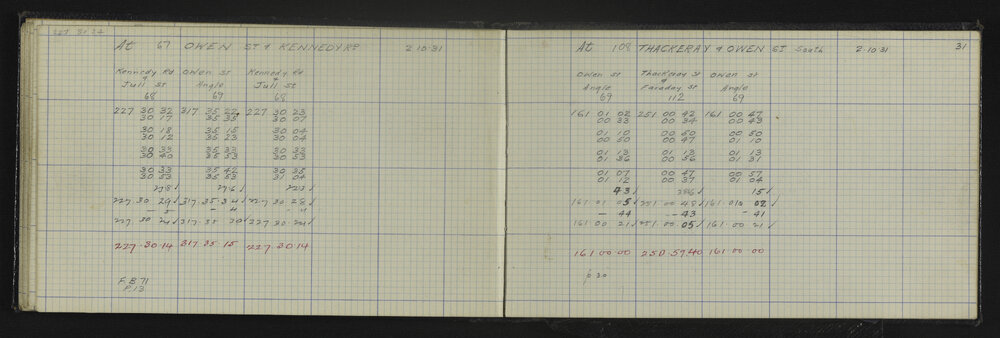 227 30 24
At 67 OWEN ST & KENNEDY RD 2·10·31
Kennedy Rd Owen St Kennedy Rd
& Angle &
Jull St Jull St
68 69 68
227 30 32 317 35 22 227 30 23
30 17 35 35 30 07
30 18 35 15 30 04
30 12 35 23 30 04
30 33 35 33 30 33
30 40 35 53 30 53
30 33 35 42 30 35
30 53 35 53 31 04
278 276 223
227 30 29 317 35 34 227 30 28
227 30 24 317 35 30 227 30 24
227·30·14 317 35·15 227·30·14
F.B 71
P.13
At 108 THACKERAY & OWEN ST South 2·10·31 31
Owen st Thackeray St Owen st
Angle & Angle
69 Faraday St 69
112
161 01 02 251 00 42 161 00 47
00 33 00 34 00 43
01 10 00 50 00 50
00 50 00 47 01 10
01 13 01 13 01 13
01 36 00 56 01 31
01 07 00 47 00 57
01 12 00 37 01 04
43 286 15
161 01 05 251·00·48 161 01 02
- 44 - 43 - 41
161 00 21 251·00·05 161·00 21
161 00 00 250·57·40 161 00·00
p 30